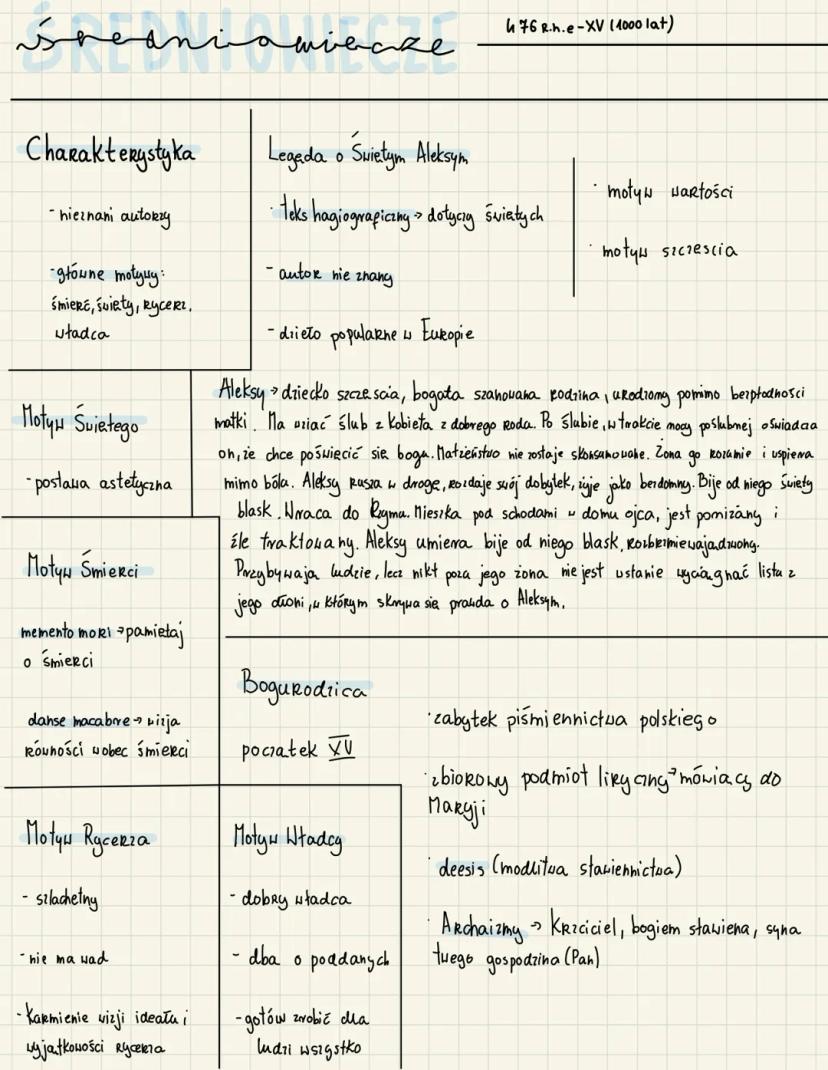 średniowiecze
ŚREDNIOWIECZE
476 R.n.e-XV (1000 lat)
Charakterystyka
- nieznani autorzy
- główne motywy:
śmierć, święty, rycerz,
władca
Legęda o Świętym Aleksym
· teks hagiograficzny → dotyczy świętych
- autor nie znany
- dzieło popularne w Europie
· motyw wartości
· motyw szczęścia
Motyw Świętego
- postawa astetyczna
Aleksy → dziecko szczęścia, bogata szanowana rodzina, urodzony pomimo bezpłodności
matki. Ma wziąć ślub z kobietą z dobrego rodu. Po ślubie, w trakcie nocy poślubnej oświadcza
on, że chce poświęcić się bogu. Małżeństwo nie zostaje skonsumowane. Żona go rozumie i wspiera
mimo bólu. Aleksy rusza w drogę, rozdaje swój dobytek, żyje jako bezdomny. Bije od niego święty
blask. Wraca do Rzymu. Mieszka pod schodami w domu ojca, jest poniżany i
źle traktowany. Aleksy umiera bije od niego blask, rozbrzmiewają dzwony.
Przybywają ludzie, lecz nikt poza jego żoną nie jest wstanie wyciągnąć listu z
jego dłoni, w którym skrywa się prawda o Aleksym.
Motyw Śmierci
memento mori → pamiętaj
o śmierci
danse macabre → wizja
równości wobec śmierci
Bogurodzica
początek XV
· zabytek piśmiennictwa polskiego
· zbiorowy podmiot liryczny → mówiący do
Maryji
· deesis (modlitwa stawiennictwa)
· Archaizmy → Krzciciel, bogiem sławiena, syna
twego gospodzina (Pan)
Motyw Rycerza
- szlachetny
- nie ma wad
- Karmienie wizji ideału i
wyjątkowości rycerza
Motyw Władcy
- dobry władca
- dba o poddanych
- gotów zrobić dla
ludzi wszystko